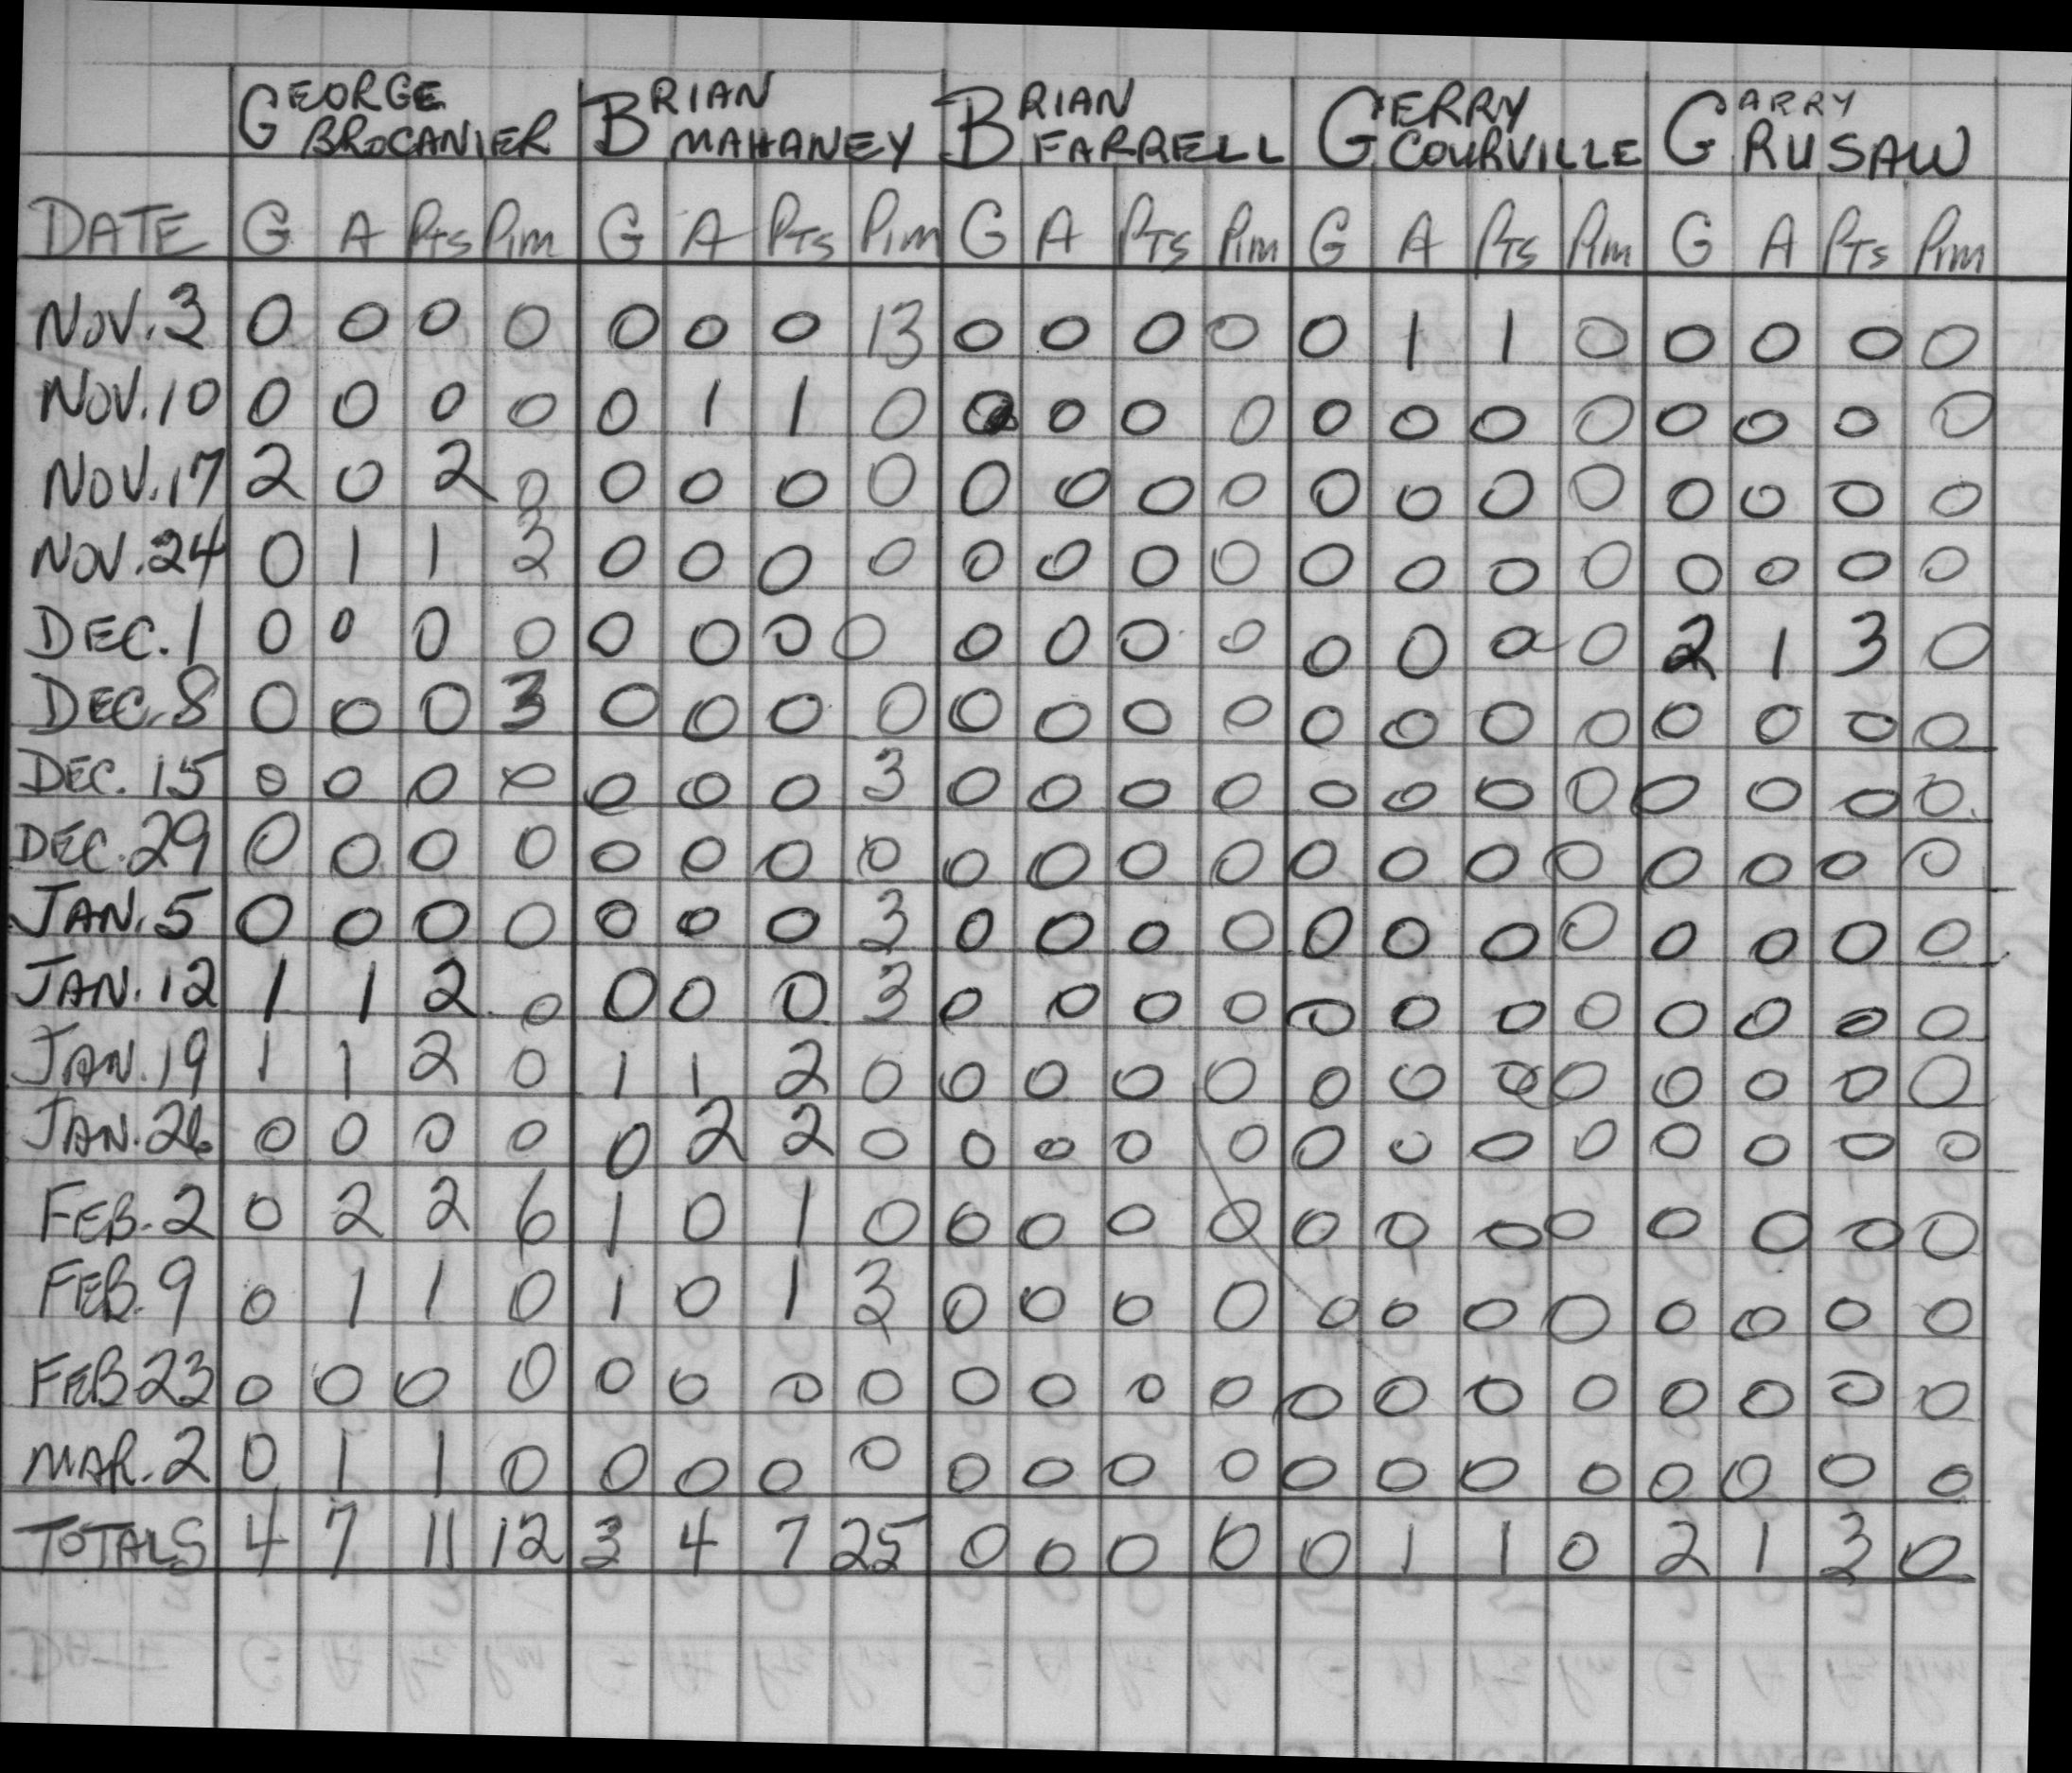 GEORGE BROCANIER BRIAN MAHANEY BRIAN FARRELL GERRY COURVILLE GARRY RUSAW
DATE G A Pts Pim G A Pts Pim G A Pts Pim G A Pts Pim G A Pts Pim
NOV.3 0 0 0 0 0 0 0 13 0 0 0 0 0 1 1 0 0 0 0 0
NOV.10 0 0 0 0 0 1 1 0 0 0 0 0 0 0 0 0 0 0 0 0
NOV.17 2 0 2 0 0 0 0 0 0 0 0 0 0 0 0 0 0 0 0 0
NOV.24 0 1 1 3 0 0 0 0 0 0 0 0 0 0 0 0 0 0 0 0
DEC.1 0 0 0 0 0 0 0 0 0 0 0 0 0 0 0 0 2 1 3 0
DEC.8 0 0 0 3 0 0 0 0 0 0 0 0 0 0 0 0 0 0 0 0
DEC.15 0 0 0 0 0 0 0 3 0 0 0 0 0 0 0 0 0 0 0 0
DEC.29 0 0 0 0 0 0 0 0 0 0 0 0 0 0 0 0 0 0 0 0
JAN.5 0 0 0 0 0 0 0 3 0 0 0 0 0 0 0 0 0 0 0 0
JAN.12 1 1 2 0 0 0 0 3 0 0 0 0 0 0 0 0 0 0 0 0
JAN.19 1 1 2 0 1 1 2 0 0 0 0 0 0 0 0 0 0 0 0 0
JAN.26 0 0 0 0 0 2 2 0 0 0 0 0 0 0 0 0 0 0 0 0
FEB.2 0 2 2 6 1 0 1 0 0 0 0 0 0 0 0 0 0 0 0 0
FEB.9 0 1 1 0 1 0 1 3 0 0 0 0 0 0 0 0 0 0 0 0
FEB23 0 0 0 0 0 0 0 0 0 0 0 0 0 0 0 0 0 0 0 0
MAR.2 0 1 1 0 0 0 0 0 0 0 0 0 0 0 0 0 0 0 0 0
TOTALS 4 7 11 12 3 4 7 25 0 0 0 0 0 1 1 0 2 1 3 0